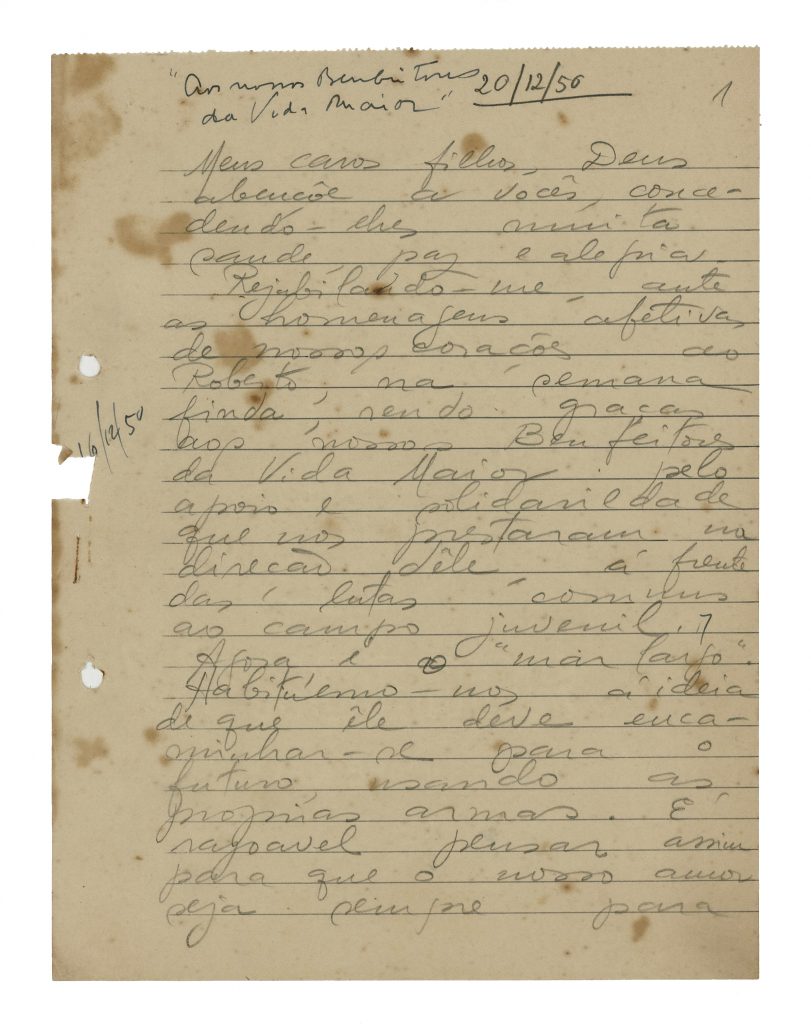 "Aos nossos Benfeitores 20/12/50
da Vida Maior"
1
Meus caros filhos, Deus
abençôe a vocês, conce-
dendo-lhes muita
saude, paz e alegria.
Rejubilando-me, ante
as homenagens afetivas
de nossos corações ao
Roberto, na semana
finda, rendo graças
aos nossos Benfeitores
da Vida Maior pelo
apoio e solidariedade
que nos prestaram na
direcão dêle á frente
das lutas comuns
ao campo juvenil.
Agora é o "mar largo".
Habituêmo-nos á ideia
de que êle deve enca-
minhar-se para o
futuro, usando as
proprias armas. É
razoavel pensar assim
para que o nosso amor
seja sempre para
16/12/50